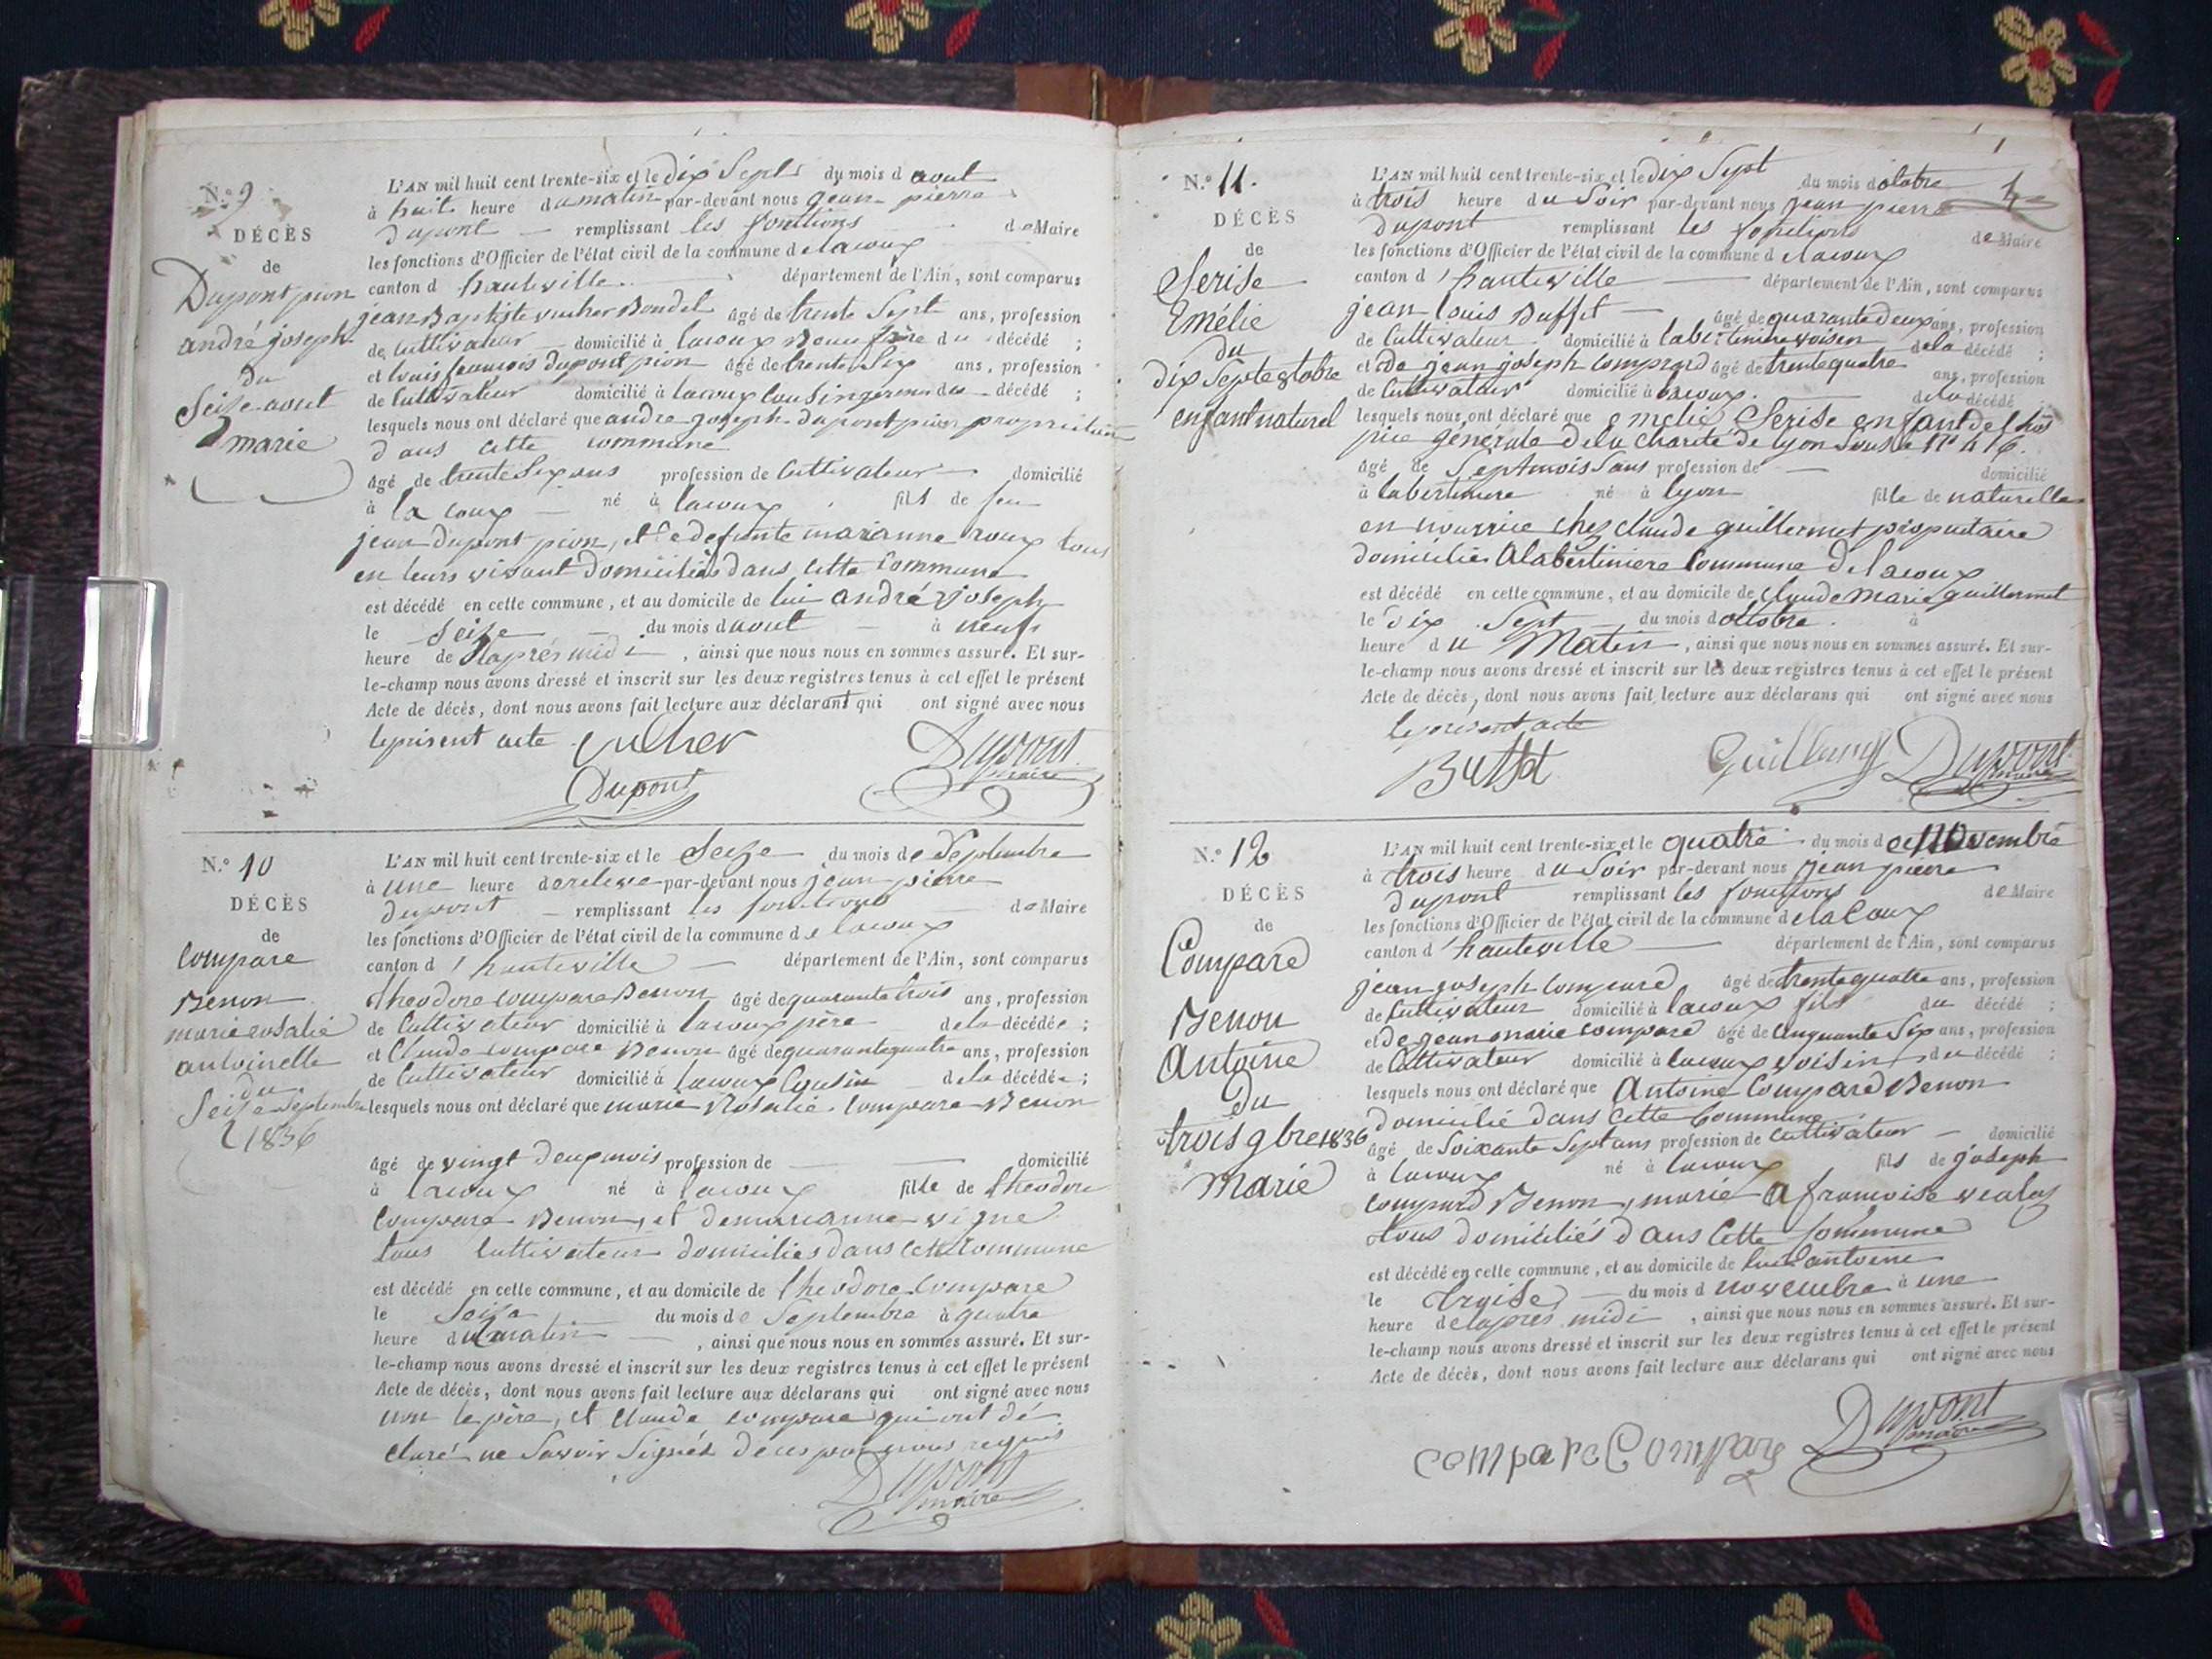 N.º 9
DÉCÈS
de
Dupont pion
andré joseph
du
Seize aout
marié
L'AN mil huit cent trente-six et le dix Sept du mois d aout
à huit heure du matin par-devant nous jean pierre
dupont remplissant les fonctions de Maire
les fonctions d'Officier de l'état civil de la commune de lacoux
canton d hauteville département de l'Ain, sont comparus
jean Baptiste vucher Boudet âgé de trente Sept ans, profession
de Cultivateur domicilié à lacoux Beau frère du décédé ;
et louis françois dupont pion âgé de trente Six ans, profession
de Cultivateur domicilié à lacoux Cousin germain du décédé ;
lesquels nous ont déclaré que andre joseph dupont pion propriétaire
dans cette commune
âgé de trente Six ans profession de Cultivateur domicilié
à la coux né à lacoux fils de feu
jean dupont pion, et de defunte marianne roux tous
en leurs vivant domiciliés dans cette Commune
est décédé en cette commune, et au domicile de lui andré joseph
le Seize du mois d aout à neufs
heure de l'aprés midi, ainsi que nous nous en sommes assuré. Et sur-
le-champ nous avons dressé et inscrit sur les deux registres tenus à cet effet le présent
Acte de décès, dont nous avons fait lecture aux déclarant qui ont signé avec nous
le présent acte vucher Dupont
Dupont maire
N.º 10
DÉCÈS
de
Compare
Benon
marie rosalie
antoinette
du
Seize Septembre
1836
L'AN mil huit cent trente-six et le Seize du mois de Septembre
à une heure de releve par-devant nous jean pierre
dupont remplissant les fonctions de Maire
les fonctions d'Officier de l'état civil de la commune de lacoux
canton d'hauteville département de l'Ain, sont comparus
theodore compare Benon âgé de quarante trois ans, profession
de Cultivateur domicilié à lacoux père de la décédée ;
et Claude compare Benon âgé de quarante quatre ans, profession
de Cultivateur domicilié à lacoux Cousin de la décédée ;
lesquels nous ont déclaré que marie Rosalie Compare Benon
âgé de vingt deux mois profession de domicilié
à lacoux né à lacoux fille de theodore
Compare Benon, et de marianne vigne
tous Cultivateur domiciliés dans cette Commune
est décédé en cette commune, et au domicile de theodore Compare
le Seize du mois de Septembre à quatre
heure du matin, ainsi que nous nous en sommes assuré. Et sur-
le-champ nous avons dressé et inscrit sur les deux registres tenus à cet effet le présent
Acte de décès, dont nous avons fait lecture aux déclarans qui ont signé avec nous
non le père, et Claude compare qui ont dé
claré ne Savoir Signér de ces par nous requis
Dupont
maire
N.º 11.
DÉCÈS
de
Serise
Emélie
du
dix Sept octobre
enfant naturel
L'AN mil huit cent trente-six et le dix Sept du mois d'octobre
à trois heure du Soir par-devant nous jean pierre
dupont remplissant les fonctions de Maire
les fonctions d'Officier de l'état civil de la commune de lacoux
canton d'hauteville département de l'Ain, sont comparus
jean louis Buffet âgé de quarante deux ans, profession
de Cultivateur domicilié à labertiniere voisin de la décédé ;
et de jean joseph Compard âgé de trente quatre ans, profession
de Cultivateur domicilié à lacoux. de la décédé ;
lesquels nous ont déclaré que emelie Serise enfant de l'hos
pice générale de la charité de lyon Sous le Nº
âgé de Sept mois Sans profession de domicilié
à labertiniere né à lyon fille de naturelle
en nourrice chez claude guillermet propriétaire
domicilié a labertiniere Commune de lacoux
est décédé en cette commune, et au domicile de claude Marie guillermet
le Dix Sept du mois d octobre à
heure du Matin, ainsi que nous nous en sommes assuré. Et sur-
le-champ nous avons dressé et inscrit sur les deux registres tenus à cet effet le présent
Acte de décès, dont nous avons fait lecture aux déclarans qui ont signé avec nous
le présent acte
Buffet Dupont
maire
N.º 12
DÉCÈS
de
Compare
Benon
Antoine
du
trois 9bre 1836
Marié
L'AN mil huit cent trente-six et le quatre du mois de Novembre
à trois heure du Soir par-devant nous jean pierre
dupont remplissant les fonctions de Maire
les fonctions d'Officier de l'état civil de la commune de la Coux
canton d'hauteville département de l'Ain, sont comparus
jean joseph Compard âgé de trente quatre ans, profession
de Cultivateur domicilié à lacoux fils du décédé ;
et de jean marie compare âgé de Cinquante Six ans, profession
de Cultivateur domicilié à lacoux voisin du décédé ;
lesquels nous ont déclaré que Antoine Compard Benon
domicilié dans Cette Commune
âgé de Soixante Sept ans profession de Cultivateur domicilié
à lacoux né à lacoux fils de joseph
Compard Benon, marié a francoise
tous domiciliés dans Cette Commune
est décédé en cette commune, et au domicile de antoine
le troise du mois d novembre à une
heure de lapres midi, ainsi que nous nous en sommes assuré. Et sur-
le-champ nous avons dressé et inscrit sur les deux registres tenus à cet effet le présent
Acte de décès, dont nous avons fait lecture aux déclarans qui ont signé avec nous
compare Compare Dupont
maire